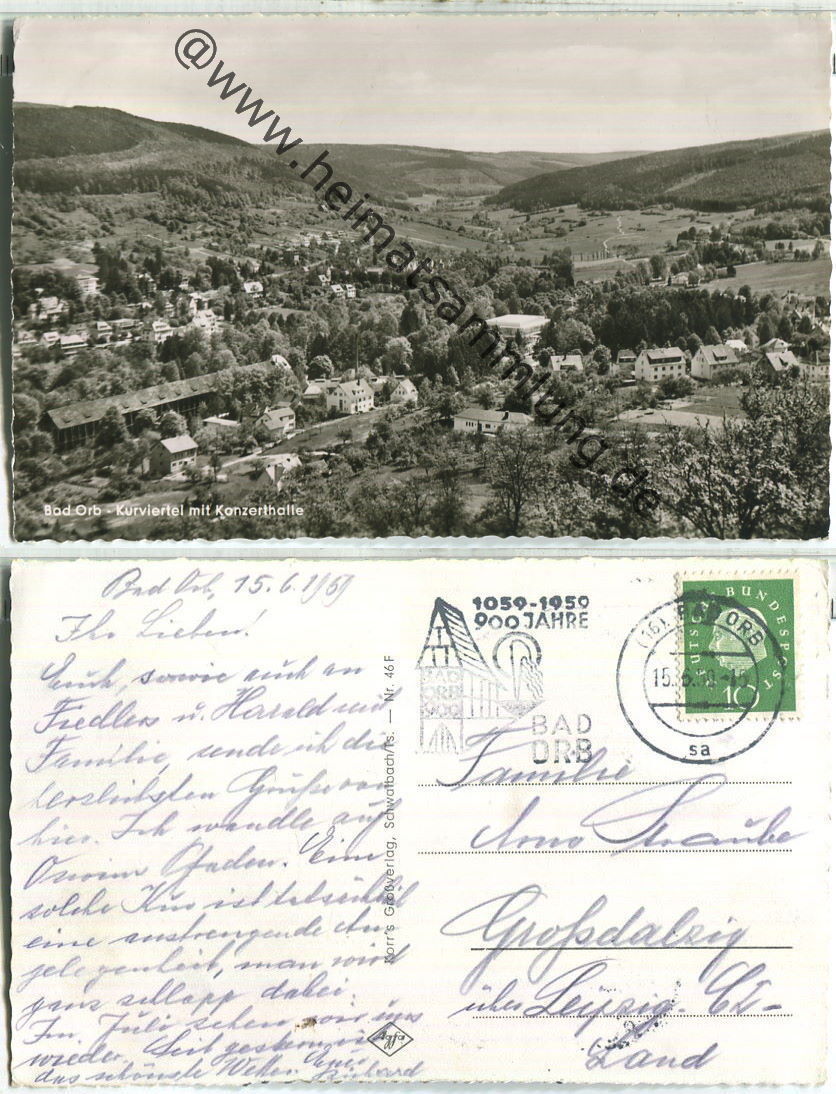 @www.heimatsammlung.de
Bad Orb - Kurviertel mit Konzerthalle
Bad Orb, 15.6.1959
Ihr Lieben!
Euch, sowie auch an
Fiedlers u. Harald mit
Familie, sende ich die
herzlichsten Grüße von
hier. Ich wandle auf
Pfaden. Eine
solche Kur ist tatsächlich
eine anstrengende An-
gelegenheit, man wird
ganz schlapp dabei.
Im Juli sehen wir uns
wieder. Seit gestern
das schönste Wetter. Euer Richard
Korr's Großverlag, Schwalbach/Ts. — Nr. 46 F
Agfa
1059-1959
900 JAHRE
BAD
ORB
900
BAD
ORB
(16) BAD ORB
15.6.59-15
sa
DEUTSCHE BUNDESPOST
10
Familie
Arno Straube
Großdalzig
über Leipzig-C1-
Land